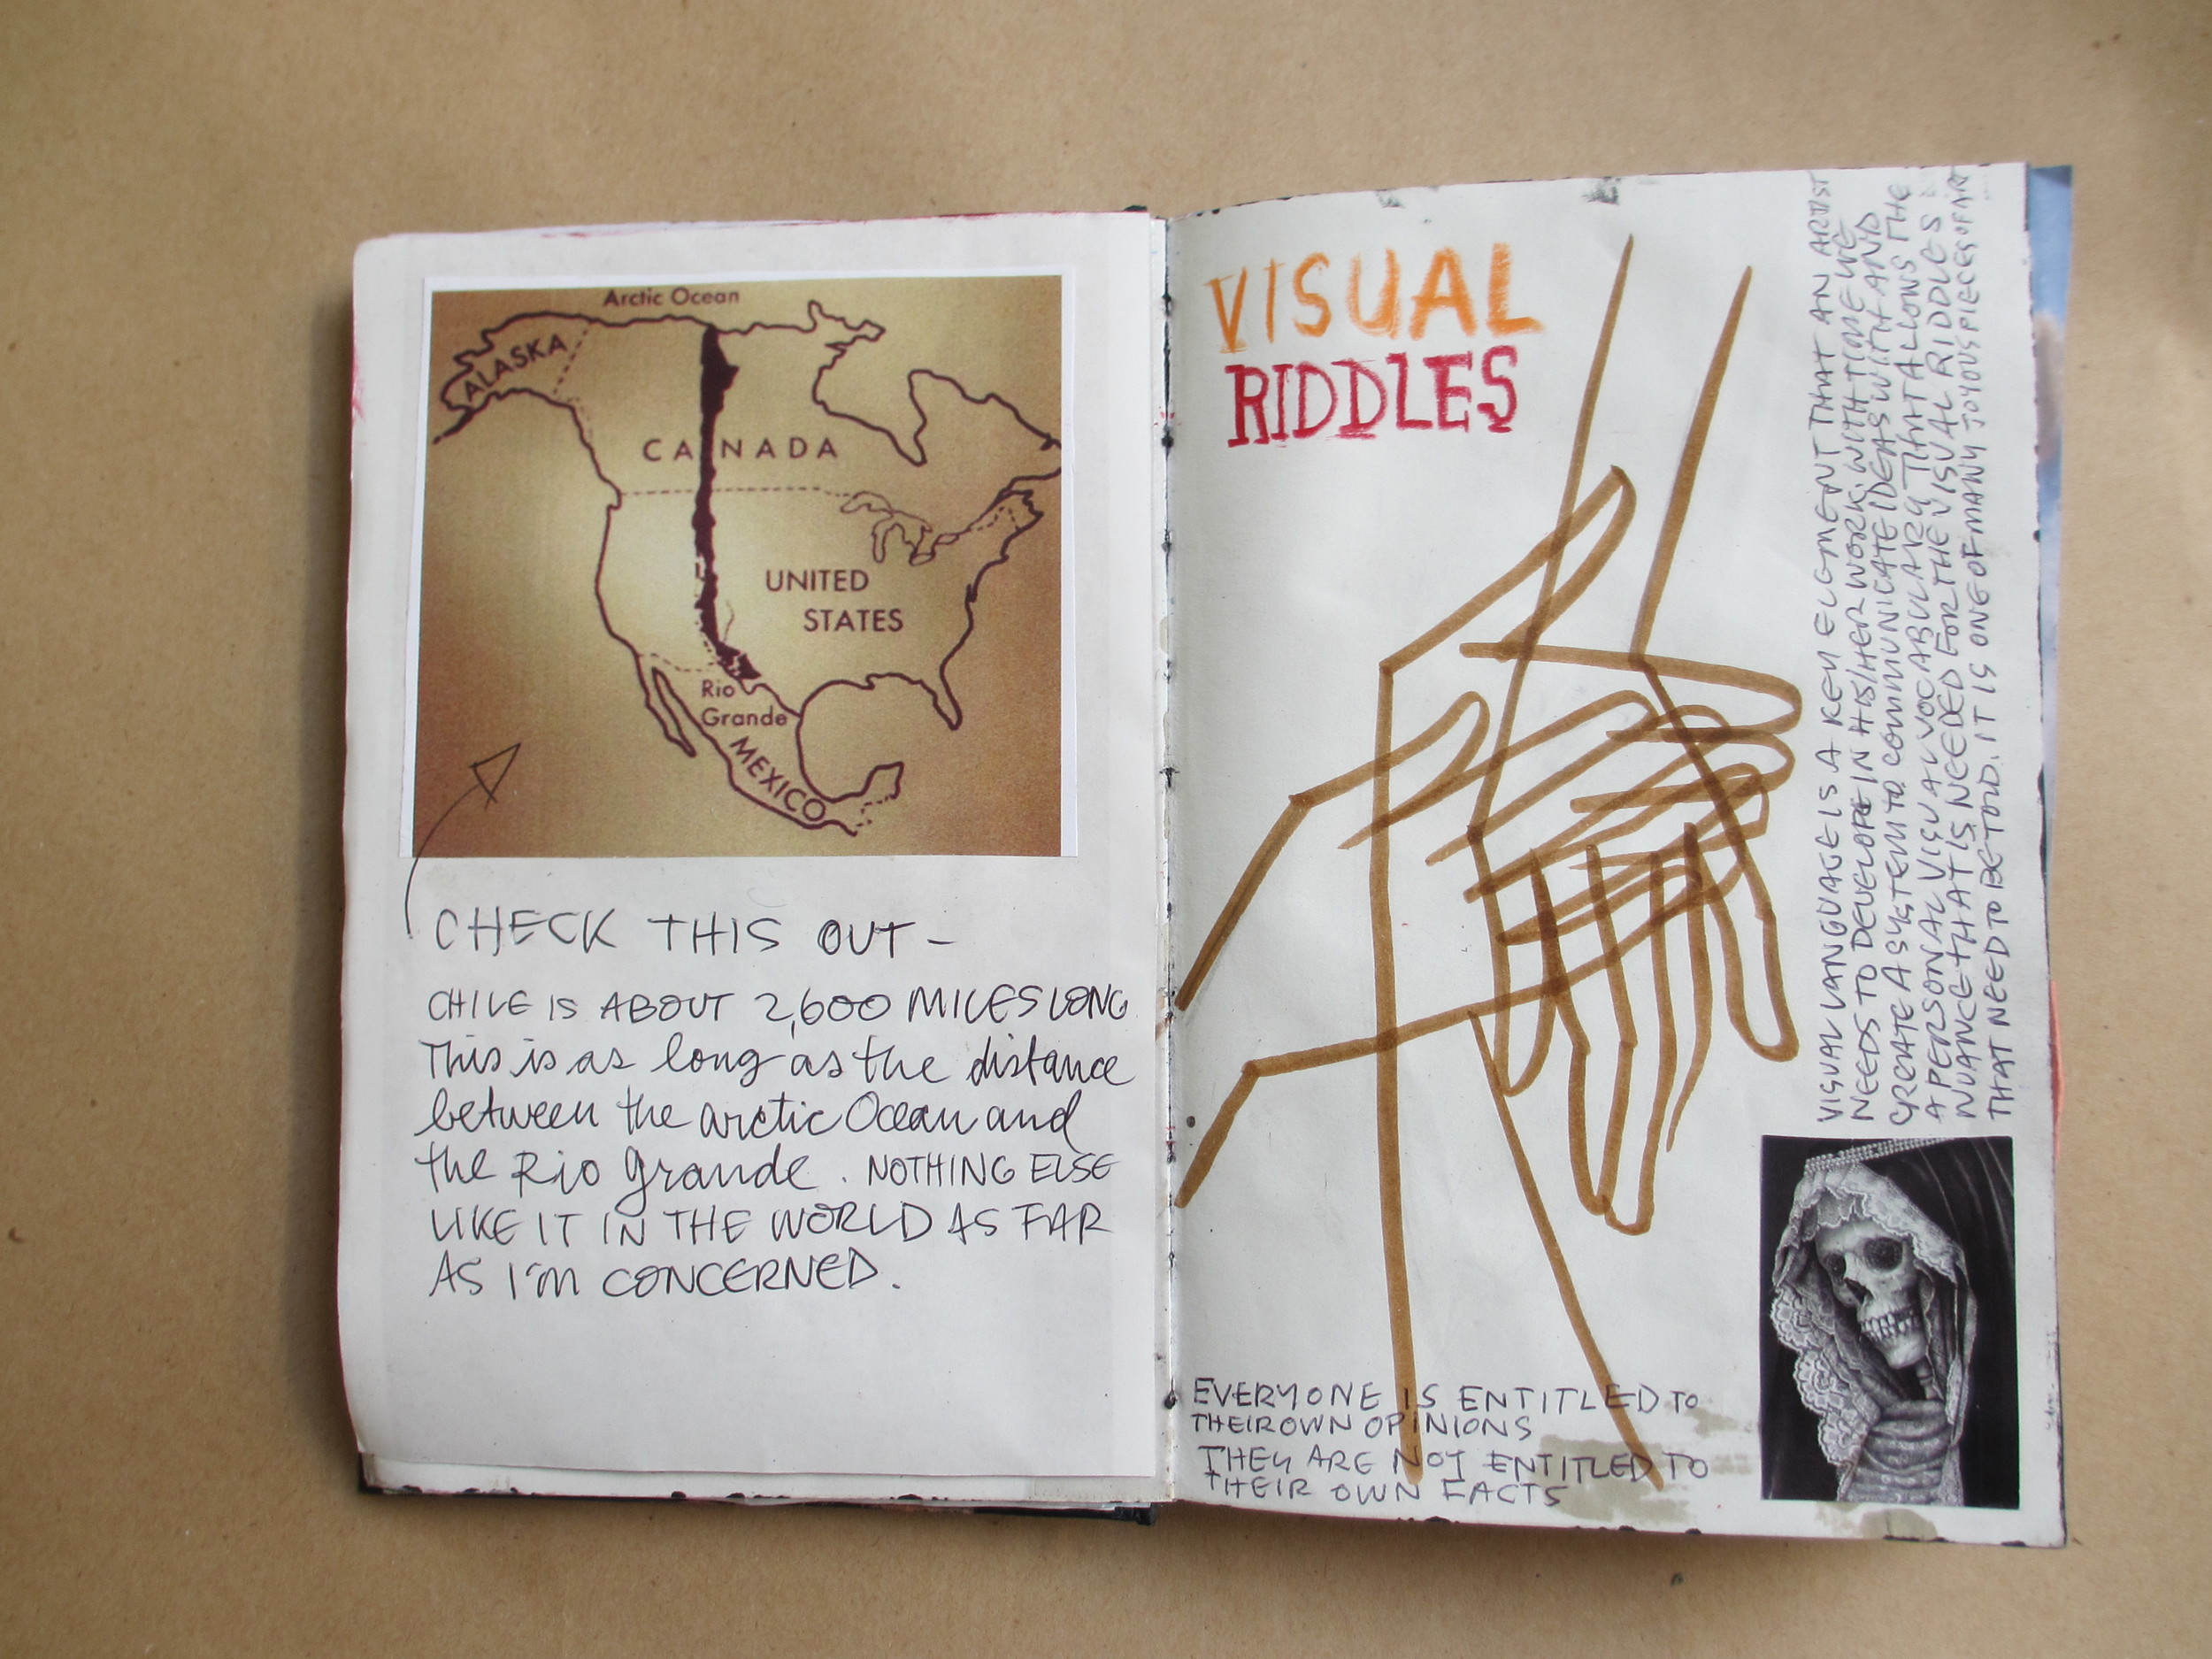 Arctic Ocean
ALASKA
CANADA
UNITED
STATES
Rio
Grande
MEXICO
CHECK THIS OUT -
CHILE IS ABOUT 2,600 MILES LONG
This is as long as the distance
between the arctic Ocean and
the Rio Grande. NOTHING ELSE
LIKE IT IN THE WORLD AS FAR
AS I'm CONCERNED.
VISUAL
RIDDLES
VISUAL LANGUAGE IS A KEY ELEMENT THAT AN ARTIST
NEEDS TO DEVELOPE IN HIS/HER WORK. WITH TIME WE
CREATE A SYSTEM TO COMMUNICATE IDEAS WITH AND
A PERSONAL VISUAL VOCABULARY THAT ALLOWS THE
NUANCE THAT IS NEEDED FOR THE VISUAL RIDDLES
THAT NEED TO BE TOLD. IT IS ONE OF MANY JOYOUS PIECES OF ART
EVERYONE IS ENTITLED TO
THEIR OWN OPINIONS
THEY ARE NOT ENTITLED TO
THEIR OWN FACTS